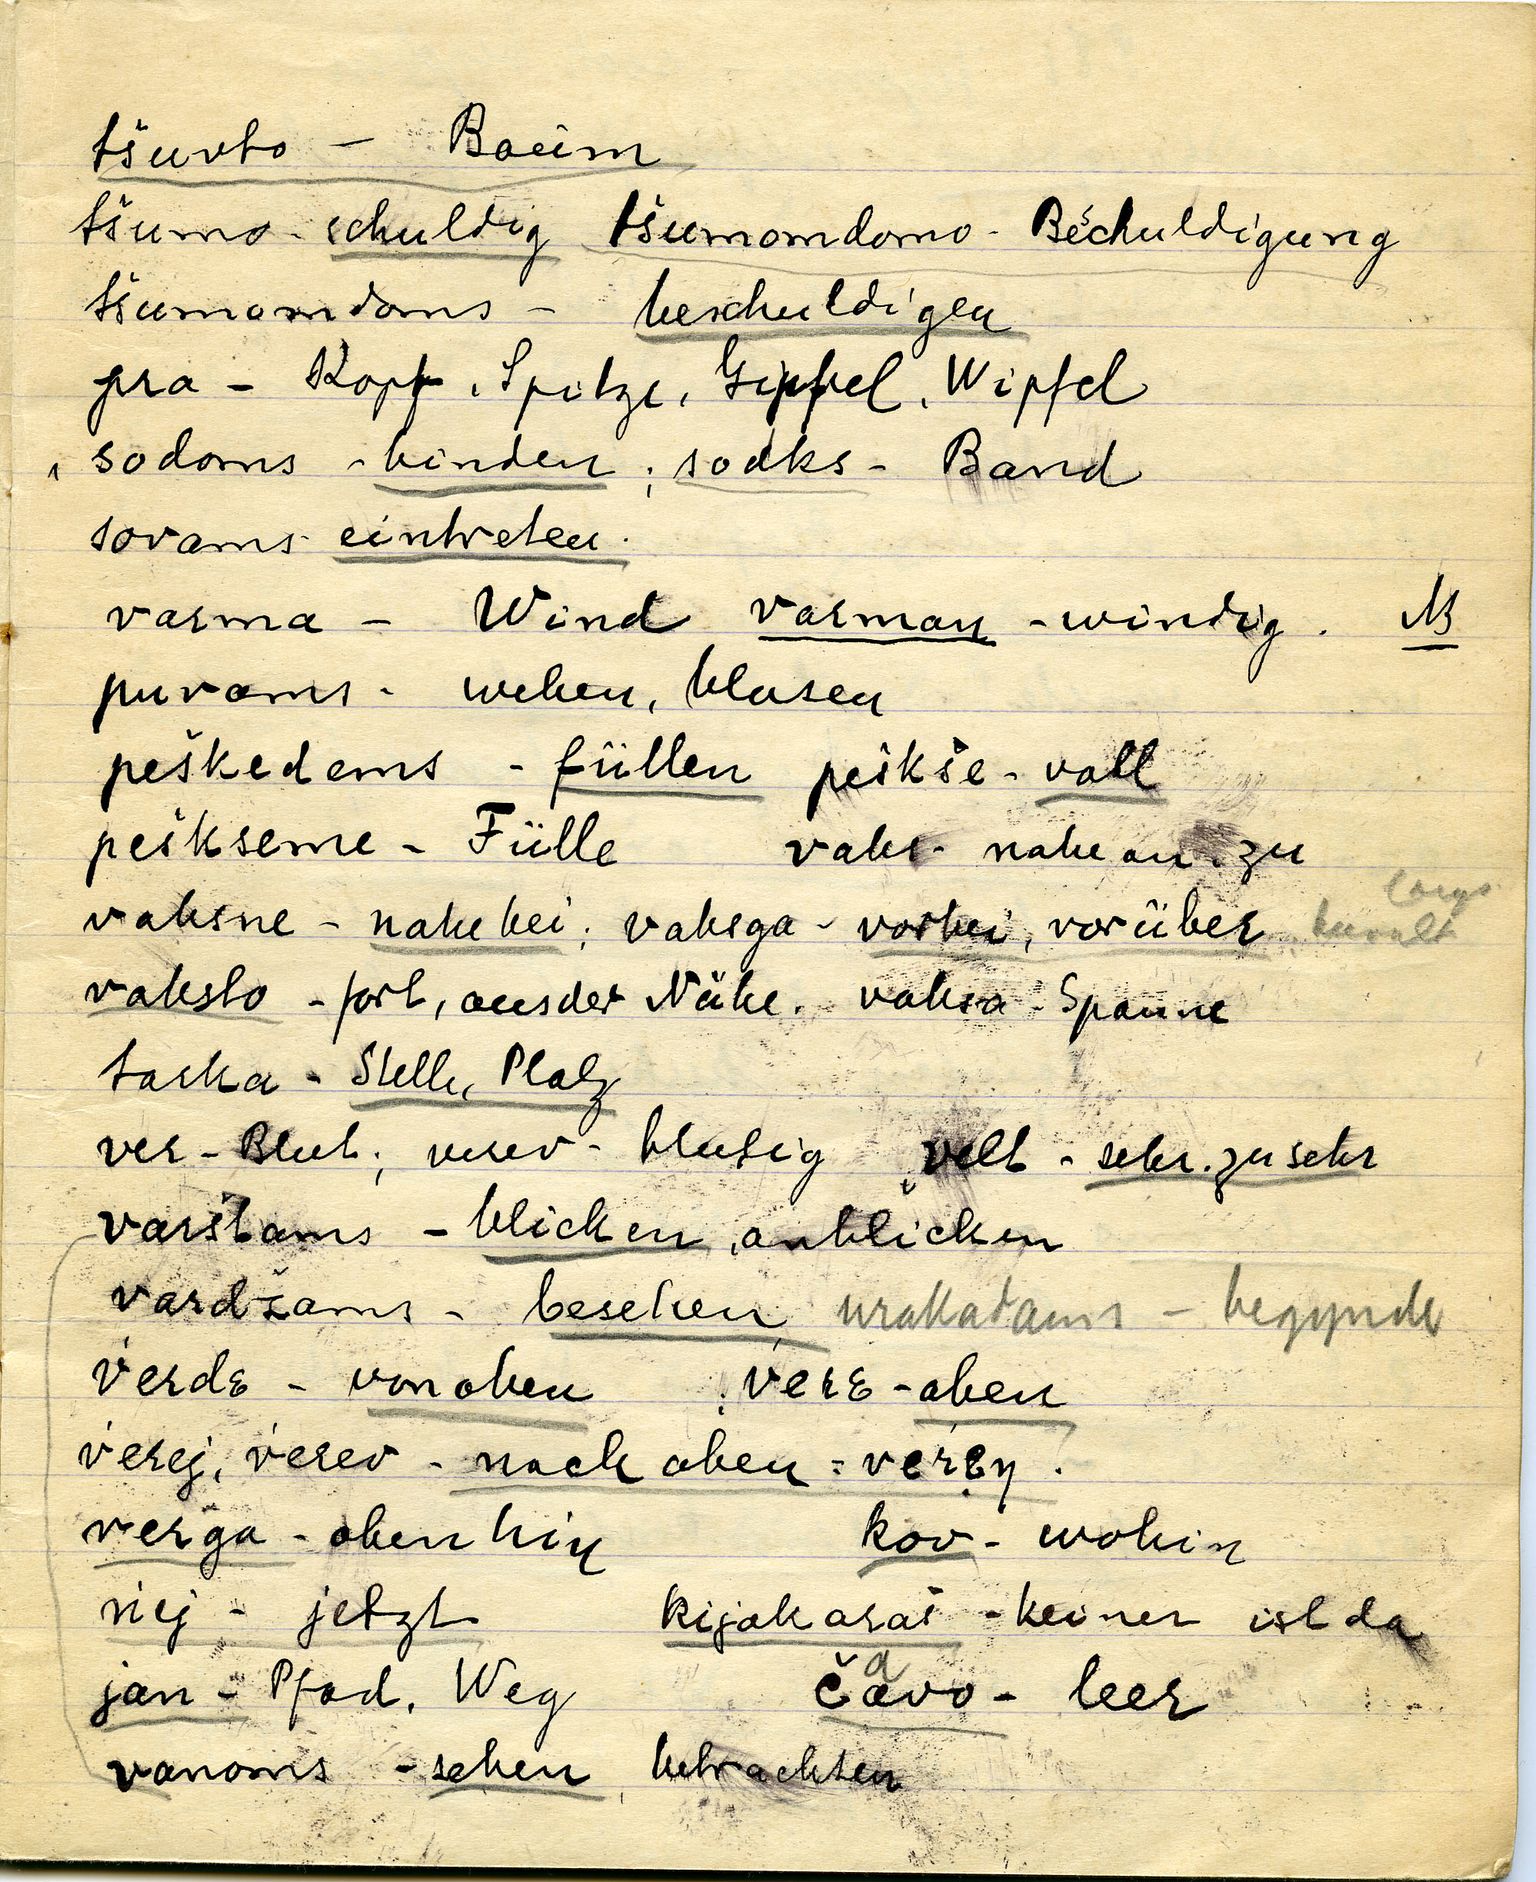 tšuvto - Baum
tšumo - schuldig tšumomdomo - Beschuldigung
tšumomdoms - beschuldigen
pra - Kopf, Spitze, Gipfel, Wipfel
sodoms - binden; sodks - Band
sovams eintreten.
varma - Wind varmaŋ - windig. NB
puvams - wehen, blasen
peškedems - füllen peškše - voll
peškseme - Fülle vaks - nahe an, zu
vaksne - nahe bei; vaksga - vorbei, vorüber
vaksto - fort, aus der Nähe. vaksa - Spanne
taŕka - Stelle, Platz
veŕ - Blut; veŕev - blutig velt - sehr, zu sehr
varštams - blicken, anblicken
vardžams - besehen urakadams - begynde
v́erde - von oben v́ere - oben
v́erej, v́erev - nach oben = v́ereŋ.
verga - obenhin kov - wohin
ńej - jetzt kijak araś - keiner ist da
jan - Pfad, Weg čavo - leer
a
vanoms - sehen, betrachten